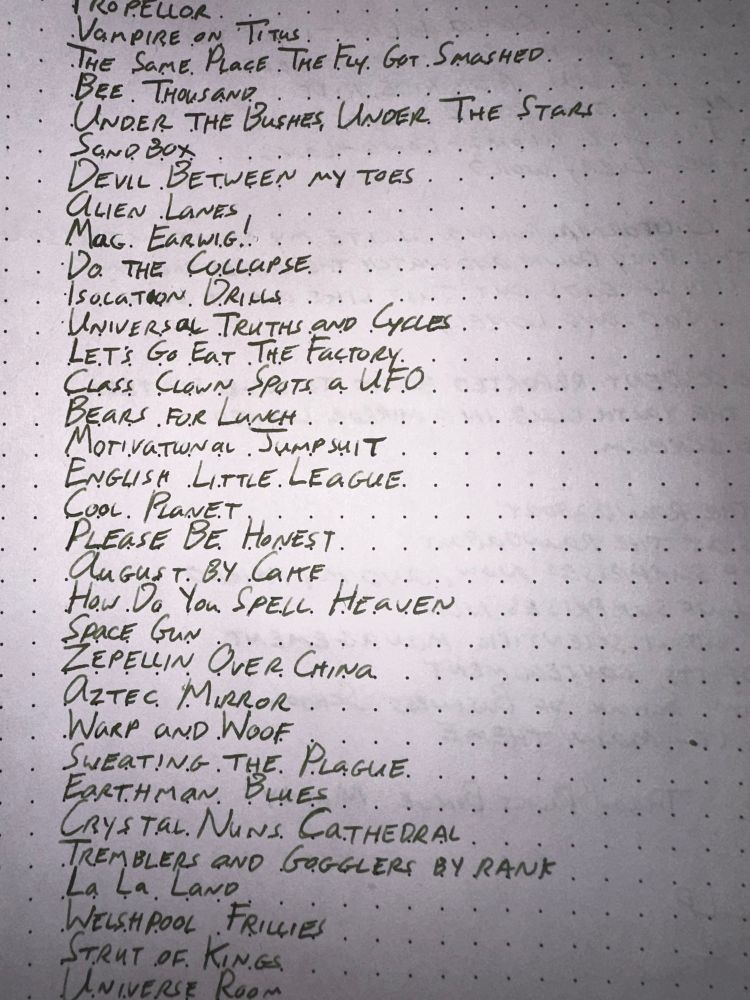 PROPELLOR
VAMPIRE ON TITUS
THE SAME PLACE THE FLY GOT SMASHED
BEE THOUSAND
UNDER THE BUSHES, UNDER THE STARS
SANDBOX
DEVIL BETWEEN MY TOES
ALIEN LANES
MAG EARWIG!
DO THE COLLAPSE
ISOLATION DRILLS
UNIVERSAL TRUTHS AND CYCLES
LET'S GO EAT THE FACTORY
CLASS CLOWN SPOTS A UFO
BEARS FOR LUNCH
MOTIVATIONAL JUMPSUIT
ENGLISH LITTLE LEAGUE
COOL PLANET
PLEASE BE HONEST
AUGUST BY CAKE
HOW DO YOU SPELL HEAVEN
SPACE GUN
ZEPELLIN OVER CHINA
AZTEC MIRROR
WARP AND WOOF
SWEATING THE PLAGUE
EARTHMAN BLUES
CRYSTAL NUNS CATHEDRAL
TREMBLERS AND GOGGLERS BY RANK
LA LA LAND
WELSHPOOL FRILLIES
STRUT OF KINGS
UNIVERSE ROOM